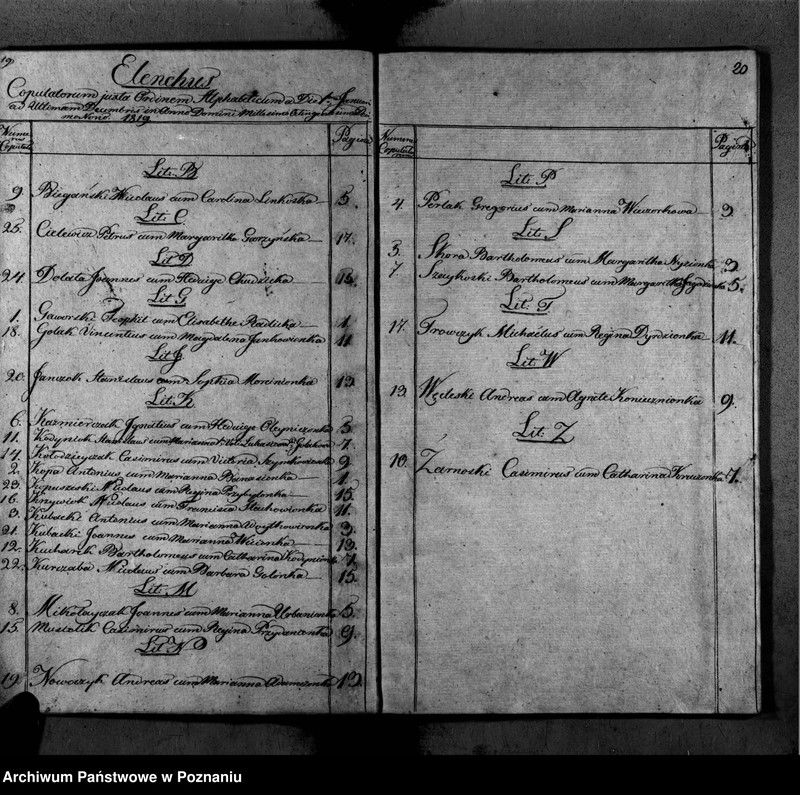 19
Elenchus
Copulatorum juxta Ordinem Alphabeticum a Die 1ma Januari
ad Ultimam Decembris in Anno Domini Millesimo Octingentesimo Deci-
mo Nono 1819
Numerus Copulatorum
Pagina
Lit. B
9. Biegański Nicolaus cum Carolina Linkoska 5.
Lit. C
25. Cielewicz Petrus cum Margaritha Garzyńska 17.
Lit. D
24. Dolata Joannes cum Hedvige Chudzicka 15.
Lit. G
1. Gaworski Teophil cum Elisabethe Radicka 1.
18. Golak Vincentius cum Magdalena Jankowionka 11
Lit. J
20. Janczak Stanislaus cum Sophia Marcinionka 13.
Lit. K
6. Kazmierczak Ignatius cum Hedvige Oleyniczonka 5.
11. Kodyniok Stanislaus cum Marianna 7.
14. Kołodzieyczak Casimirus cum Victoria Szymkowionka 9
2. Kopa Antonius cum Marianna 1.
23. Nicolaus cum Regina Przybylonka 15.
16. Krzywiok Nicolaus cum Francisca Stachowionka 11.
3. Kubacki Antonius cum Marianna Woytkowionka 3.
21. Kubacki Joannes cum Marianna 13.
12. Kucharik Bartholomeus cum Catharina Kodynionka 7.
22. Kurczaba Nicolaus cum Barbara Golonka 15.
Lit. M
8. Mikołayczak Joannes cum Marianna Urbanionka 5.
15. Musialik Casimirus cum Regina Przydanionka 9.
Lit. N
19. Nowaczyk Andreas cum Marianna Adamczonka 13.
20
Numerus Copulatorum
Pagina
Lit. P
4. Perlak Gregorius cum Marianna Wieczorkowa 3.
Lit. S
5. Skora Bartholomeus cum Margaritha 3.
7. Szczykoski Bartholomeus cum Margaritha 5.
Lit. T
17. Trowczyk Michaelus cum Regina Dyrdzionka 11.
Lit. W
13. Wedeski Andreas cum Agnete Koniecznionka 9.
Lit. Z
10. Zarnoski Casimirus cum Catharina 7.
Archiwum Państwowe w Poznaniu